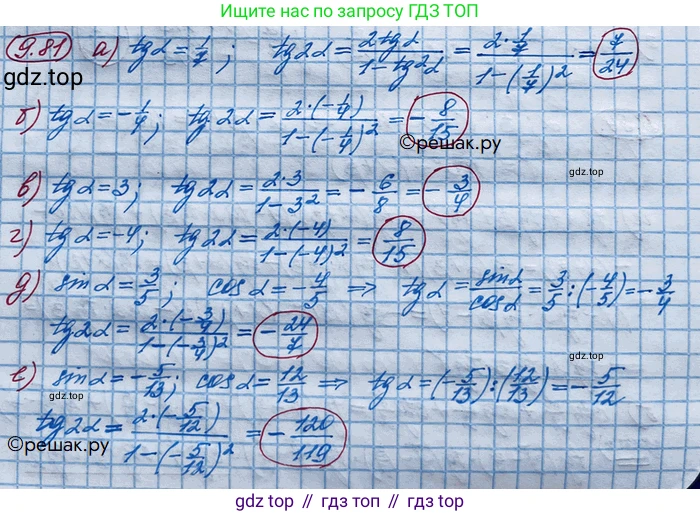 Ищите нас по запросу ГДЗ ТОП
9.81 а) tgα = 1/7; tg2α = 2tgα/(1-tg²α) = 2·1/7/(1-(1/7)²) = 7/24
gdz.top
б) tgα = -1/4; tg2α = 2·(-1/4)/(1-(-1/4)²) = -8/15
©решак.ру
в) tgα = 3; tg2α = 2·3/(1-3²) = -6/8 = -3/4
г) tgα = -4; tg2α = 2·(-4)/(1-(-4)²) = 8/15
д) sinα = 3/5; cosα = -4/5 ⇒ tgα = sinα/cosα = 3/5:(-4/5) = -3/4
tg2α = 2·(-3/4)/(1-(-3/4)²) = -24/7
е) sinα = -5/13; cosα = 12/13 ⇒ tgα = (-5/13):(12/13) = -5/12
tg2α = 2·(-5/12)/(1-(-5/12)²) = -120/119
©решак.ру
gdz top // гдз топ // gdz.top